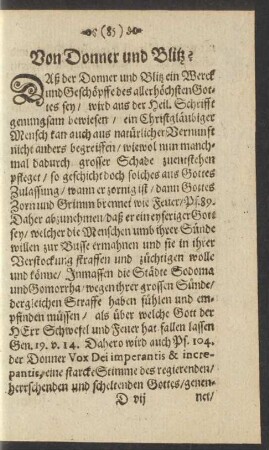 (85)
Von Donner und Blitz.
DAß der Donner und Blitz ein Werck
und Geschöpffe des allerhöchsten Got-
tes sey / wird aus der Heil. Schrifft
genungsam bewiesen / ein Christgläubiger
Mensch kan auch aus natürlicher Vernunft
nicht anders begreiffen / wiewol nun manch-
mal dadurch grosser Schade zuentstehen
pfleget / so geschicht doch solches aus Gottes
Zulassung / wann er zornig ist / dann Gottes
Zorn und Grimm brennet wie Feuer / Ps. 89.
Daher abzunehmen / daß er ein eyferiger Gott
sey / welcher die Menschen umb ihrer Sünde
willen zur Busse ermahnen und sie in ihrer
Verstockung straffen und züchtigen wolle
und könne / Inmassen die Städte Sodoma
und Gomorrha / wegen ihrer grossen Sünde /
dergleichen Straffe haben fühlen und em-
pfinden müssen / als über welche Gott der
HErr Schwefel und Feuer hat fallen lassen
Gen. 19. v. 14. Dahero wird auch Ps. 104.
der Donner Vox Dei imperantis & incre-
pantis, eine starcke Stimme des regierenden /
herrschenden und scheltenden Gottes / genen-
D vij net /